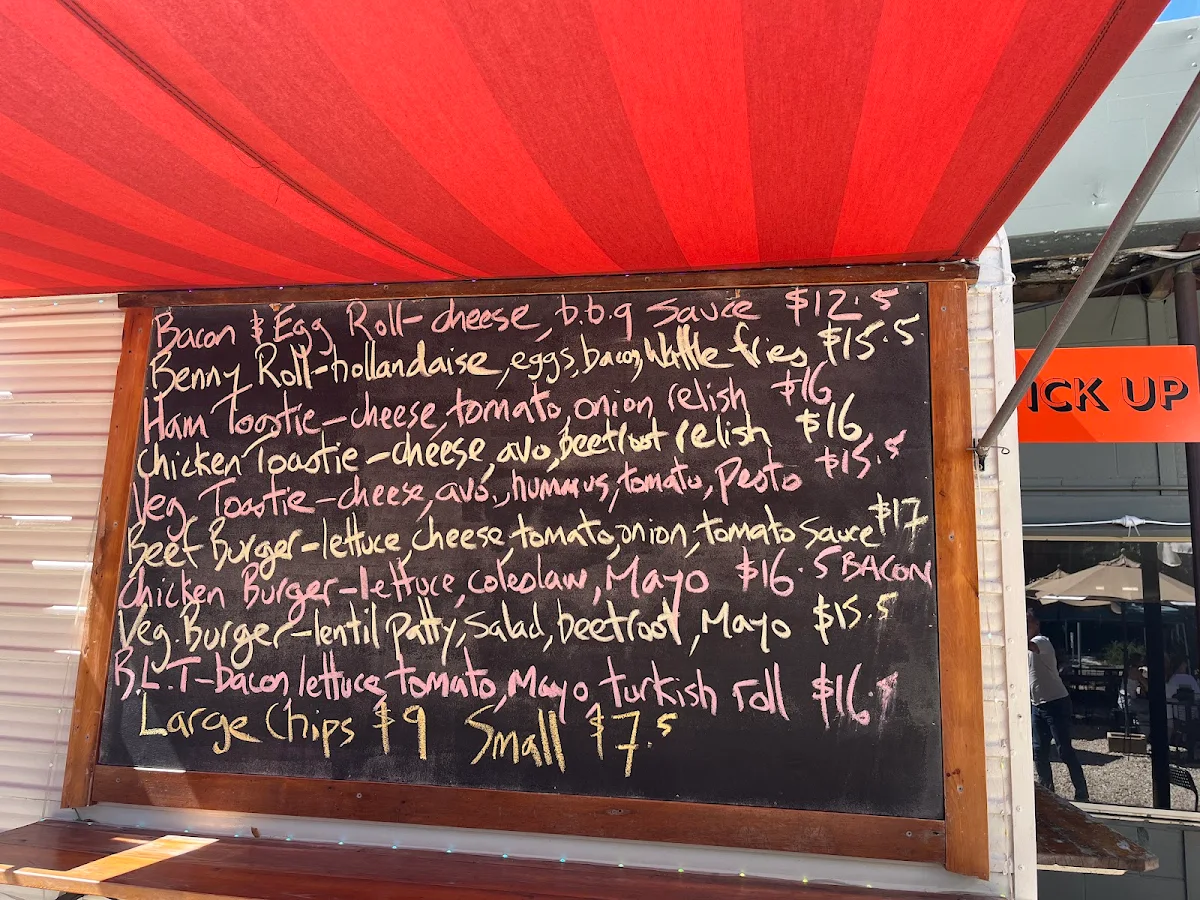 Bacon & Egg Roll - cheese, b.b.q sauce $12.5
Benny Roll - hollandaise, eggs, bacon, Waffle fries $15.5
Ham Toastie - cheese, tomato, onion relish $16
Chicken Toastie - cheese, avo, beetroot relish $16
Veg Toastie - cheese, avo, hummus, tomato, Pesto $15.5
Beef Burger - lettuce, cheese, tomato, onion, tomato sauce $17
Chicken Burger - lettuce, coleslaw, Mayo $16.5 BACON
Veg. Burger - lentil patty, salad, beetroot, Mayo $15.5
B.L.T - bacon, lettuce, tomato, Mayo, turkish roll $16.
Large Chips $9 Small $7.5
ICK UP